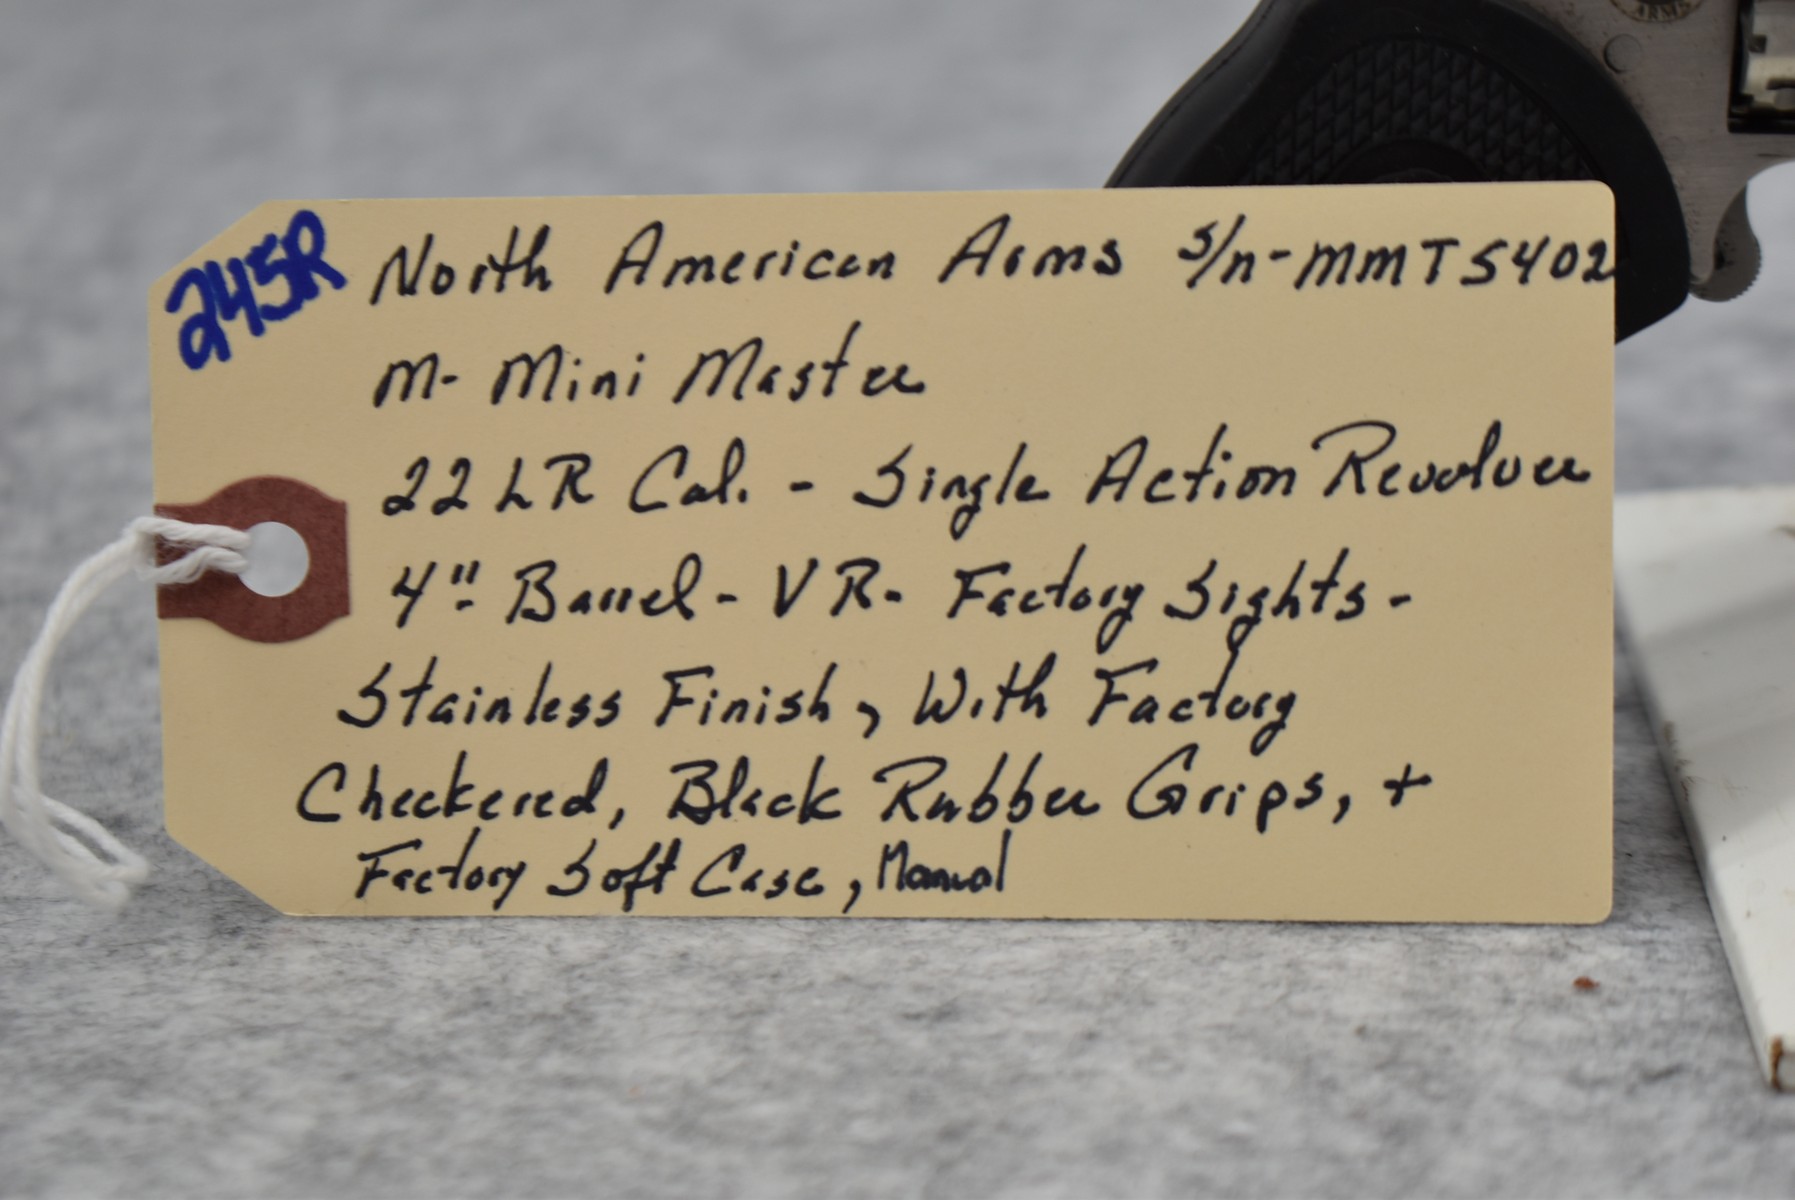 ARMS
245R
North American Arms S/n-MMT5402
M- Mini Master
22 LR Cal. - Single Action Revolver
4" Barrel - VR- Factory Sights -
Stainless Finish, With Factory
Checkered, Black Rubber Grips, +
Factory Soft Case, Manual